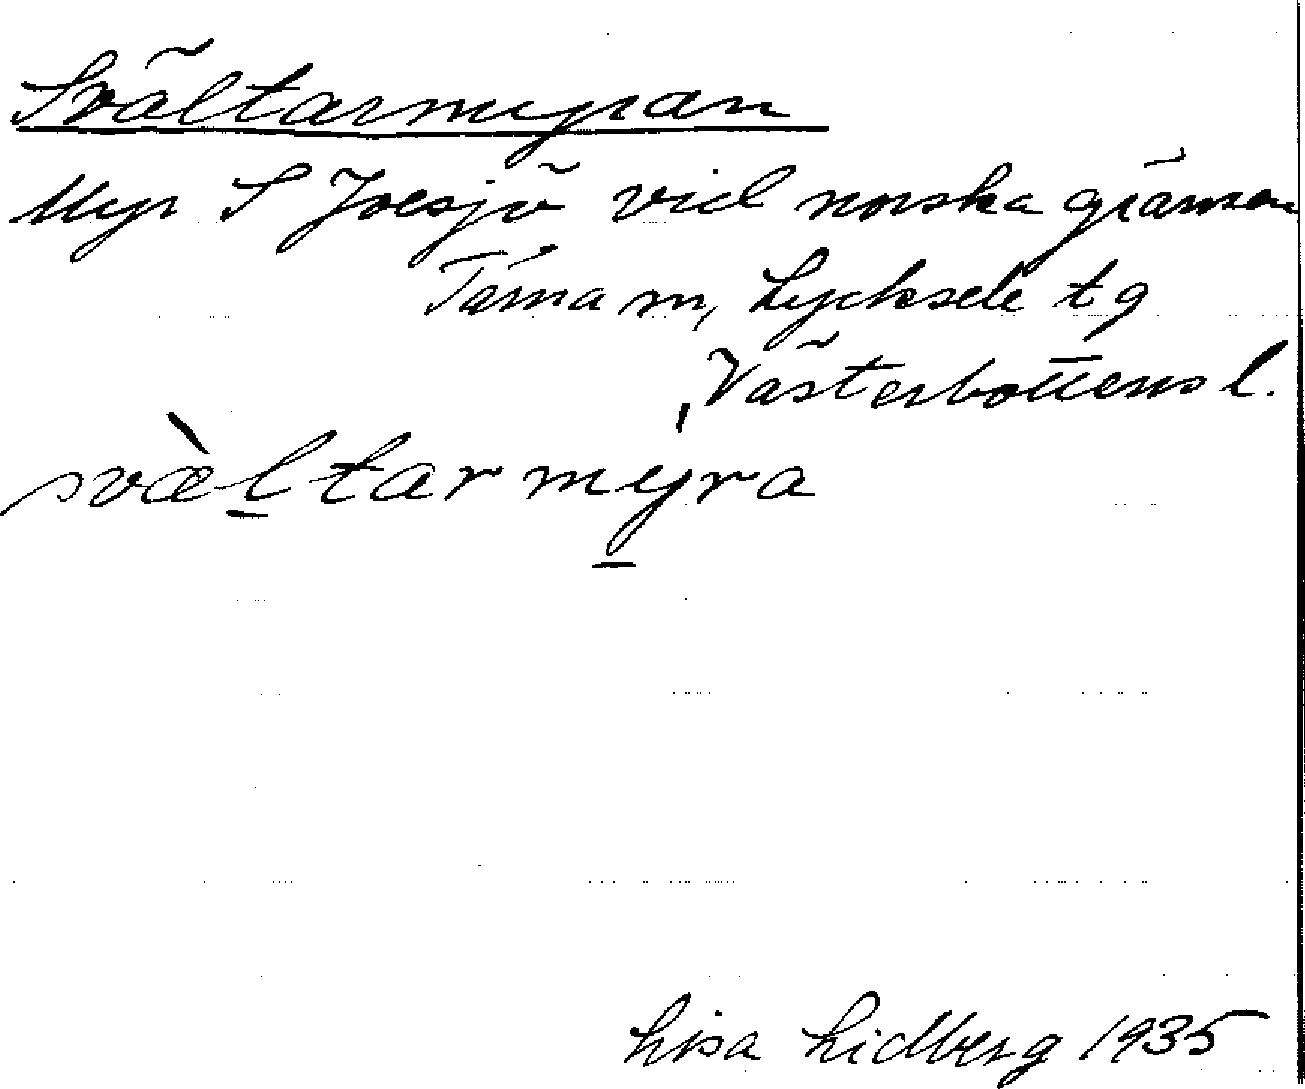 Svältarmyran
Myr S Joesjö vid norska gränsen
Tärna sn, Lycksele tg
Västerbottens l.
svæ̀ltarmyra
Lisa Lidberg 1935